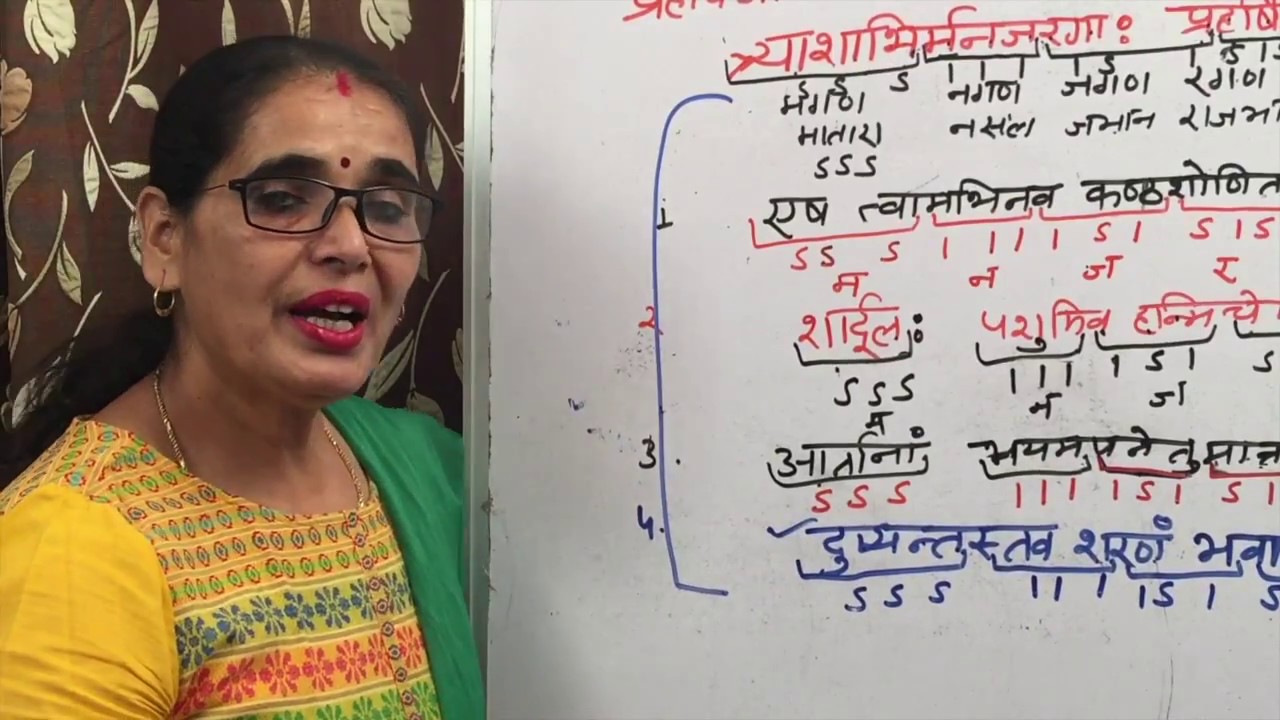 त्र्याशाभिर्मनजरगाः प्रहर्षि
S S S | | | | S | S | S
मगण नगण जगण रगण
मातारा नसल जभान राजभा
S S S
1 एष त्वामभिनव कण्ठशोणित
S S S | | | | S | S | S
म न ज र
2 शार्दूलः पशुमिव हन्मि चे
S S S | | | | S | S
म न ज
3. आर्तानां भयमपनेतुमात्त
S S S | | | | S | S |
4. दुष्यन्तस्तव शरणं भवा
S S S | | | | S | S